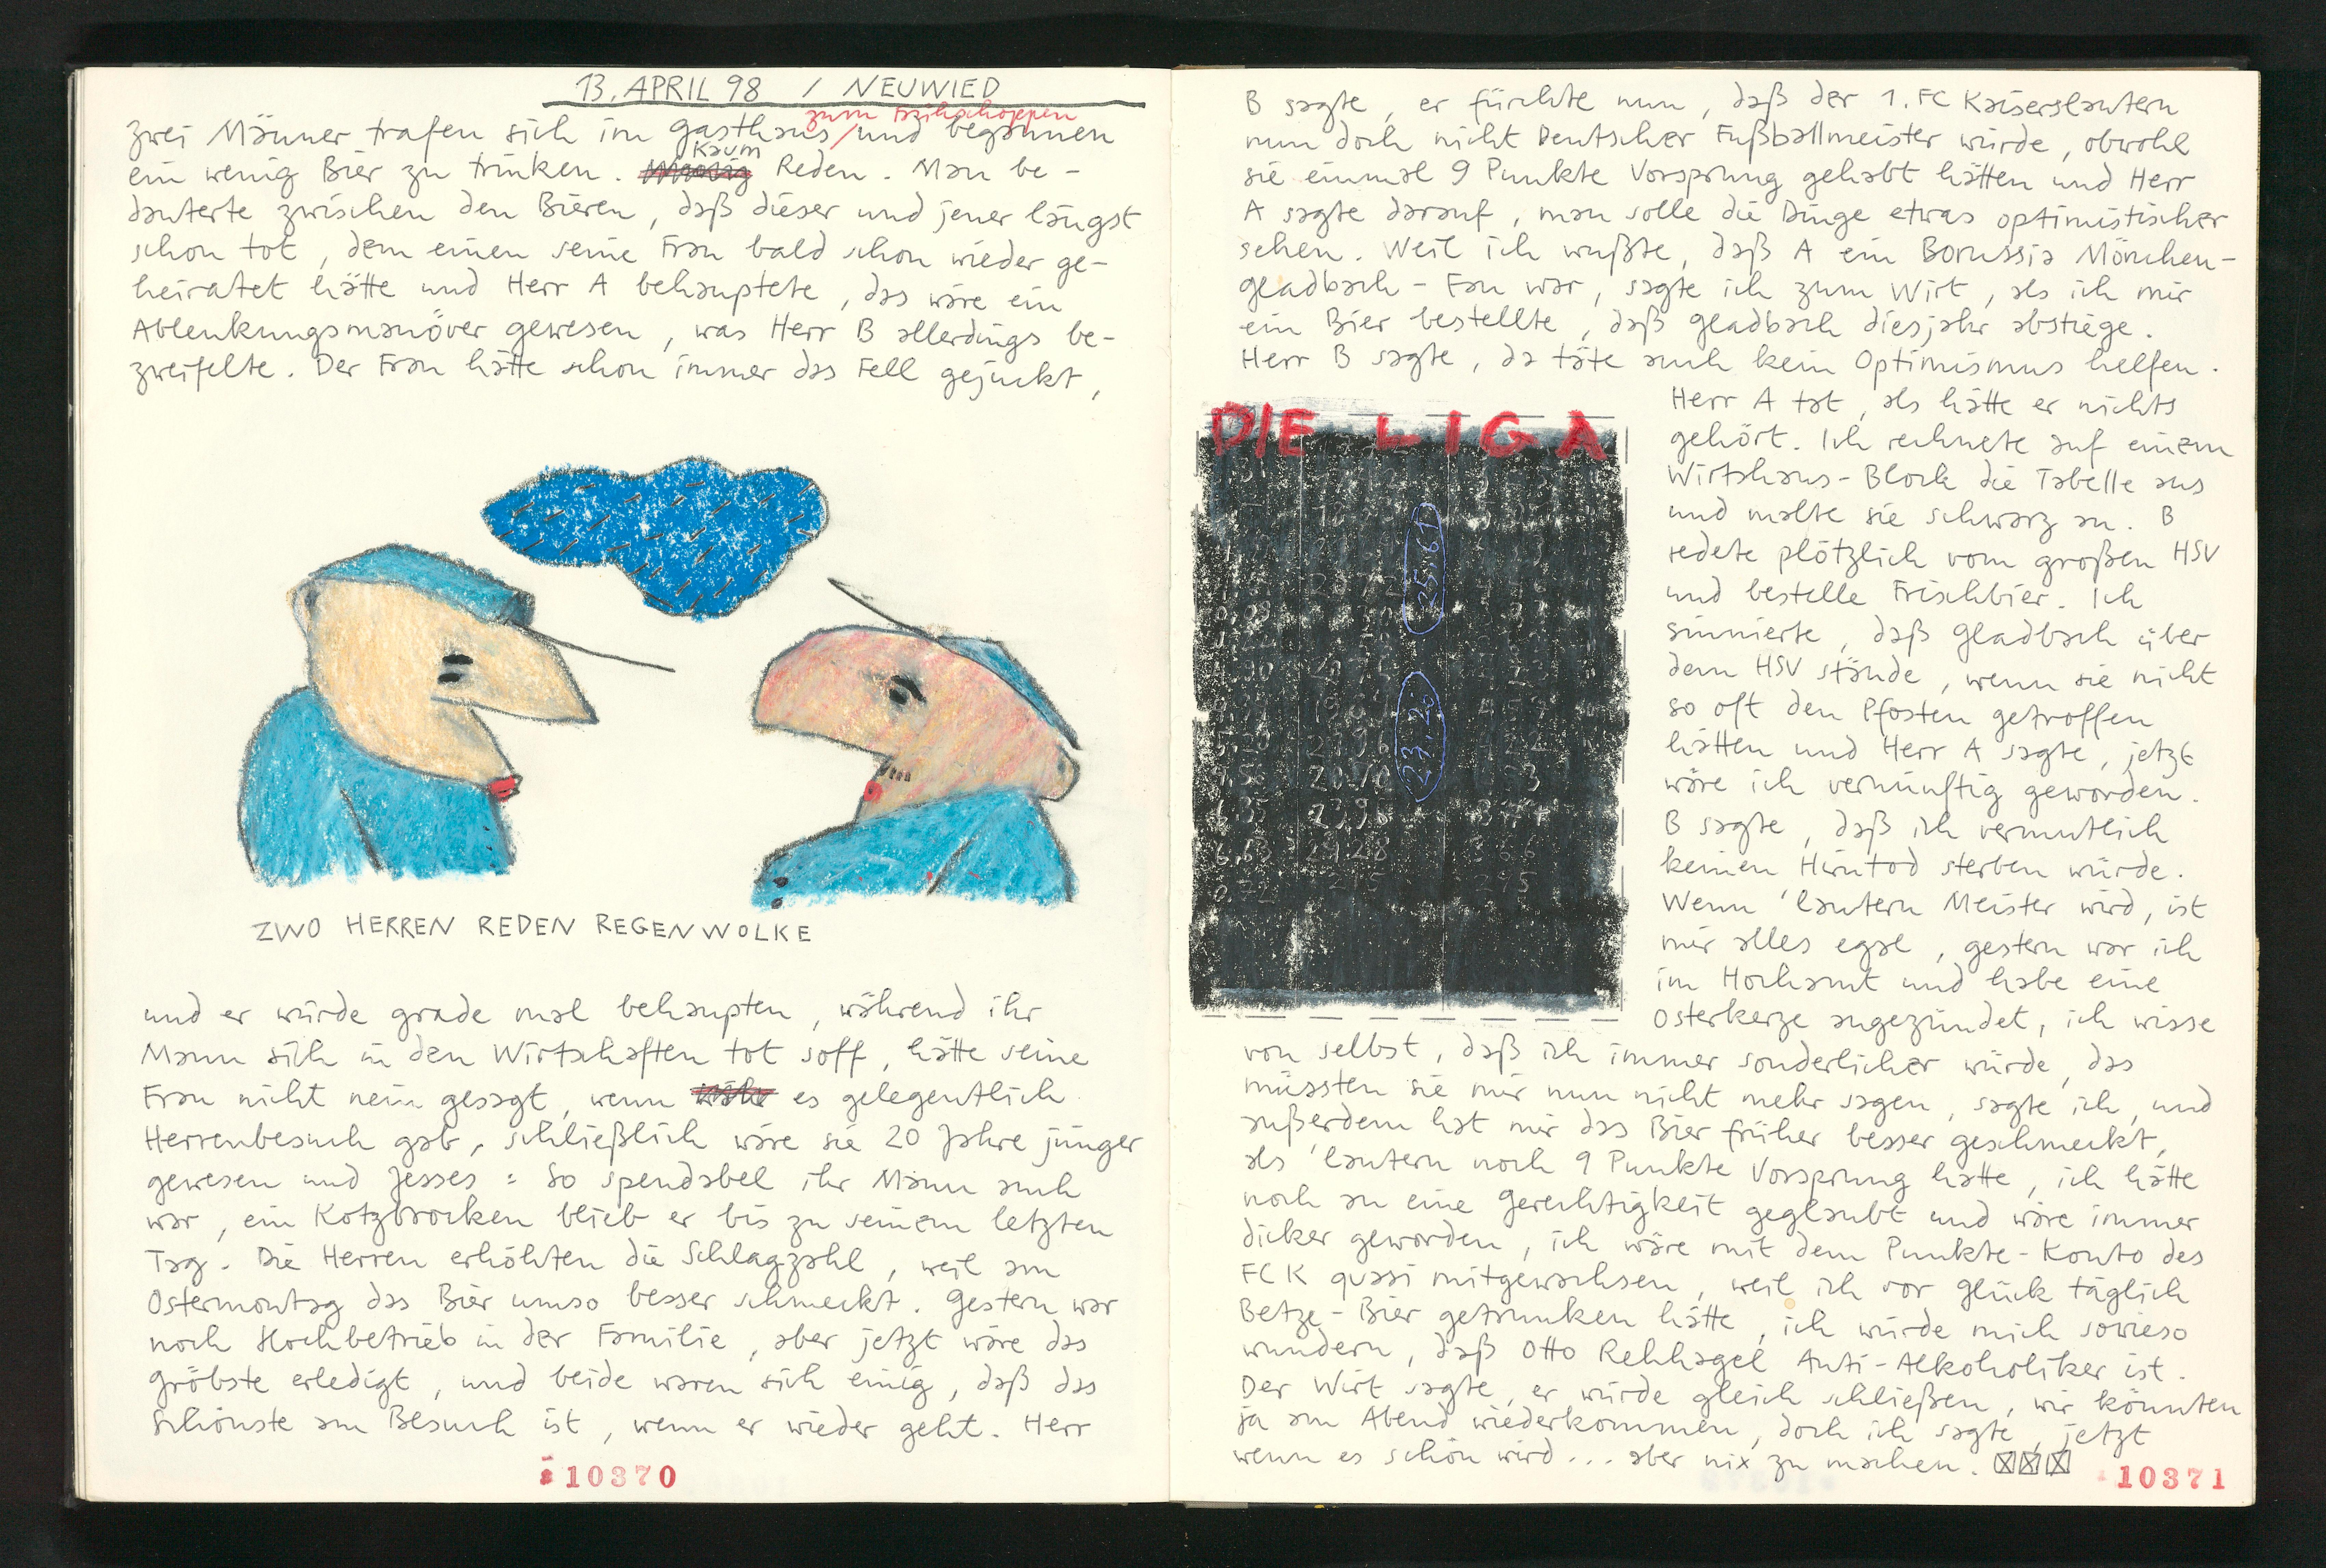 13. APRIL 98 / NEUWIED
zum Frühschoppen
Zwei Männer trafen sich im Gasthaus / und begannen
Kaum
ein wenig Bier zu trinken. Reden. Man be-
dauterte zwischen den Bieren, daß dieser und jener längst
schon tot, dem einen seine Frau bald schon wieder ge-
heiratet hätte und Herr A behauptete, das wäre ein
Ablenkungsmanöver gewesen, was Herr B allerdings be-
zweifelte. Der Frau hätte schon immer das Fell gejuckt,
ZWO HERREN REDEN REGENWOLKE
und er würde grade mal behaupten, während ihr
Mann sich in den Wirtschaften tot soff, hätte seine
Frau nicht nein gesagt, wenn es gelegentlich
Herrenbesuch gab, schließlich wäre sie 20 Jahre jünger
gewesen und Jesses: So spendabel ihr Mann auch
war, ein Kotzbrocken blieb er bis zu seinem letzten
Tag. Die Herren erhöhten die Schlagzahl, weil am
Ostermontag das Bier umso besser schmeckt. Gestern war
noch Hochbetrieb in der Familie, aber jetzt wäre das
Gröbste erledigt, und beide waren sich einig, daß das
Schönste am Besuch ist, wenn er wieder geht. Herr
10370
B sagte, er fürchte nun, daß der 1. FC Kaiserslautern
nun doch nicht Deutscher Fußballmeister würde, obwohl
sie einmal 9 Punkte Vorsprung gehabt hätten und Herr
A sagte darauf, man solle die Dinge etwas optimistischer
sehen. Weil ich wußte, daß A ein Borussia Mönchen-
gladbach-Fan war, sagte ich zum Wirt, als ich mir
ein Bier bestellte, daß Gladbach diesjahr abstiege.
Herr B sagte, da täte auch kein Optimismus helfen.
DIE LIGA
25.61
23.2
Herr A tat, als hätte er nichts
gehört. Ich rechnete auf einem
Wirtshaus-Block die Tabelle aus
und malte sie schwarz an. B
redete plötzlich vom großen HSV
und bestelle Frischbier. Ich
sinnierte, daß Gladbach über
dem HSV stände, wenn sie nicht
so oft den Pfosten getroffen
hätten und Herr A sagte, jetzt
wäre ich vernünftig geworden.
B sagte, daß ich vermutlich
keinen Hirntod sterben würde.
Wenn 'lautern Meister wird, ist
mir alles egal, gestern war ich
im Hochamt und habe eine
Osterkerze angezündet, ich wisse
von selbst, daß ich immer sonderlicher würde, das
müssten sie mir nun nicht mehr sagen, sagte ich, und
außerdem hat mir das Bier früher besser geschmeckt,
als 'lautern noch 9 Punkte Vorsprung hatte, ich hätte
noch an eine Gerechtigkeit geglaubt und wäre immer
dicker geworden, ich wäre mit dem Punkte-Konto des
FCK quasi mitgewachsen, weil ich vor Glück täglich
Betze-Bier getrunken hätte, ich würde mich sowieso
wundern, daß Otto Rehhagel Anti-Alkoholiker ist.
Der Wirt sagte, er würde gleich schließen, wir könnten
ja am Abend wiederkommen, doch ich sagte, jetzt
wenn es schön wird... aber nix zu machen.
10371